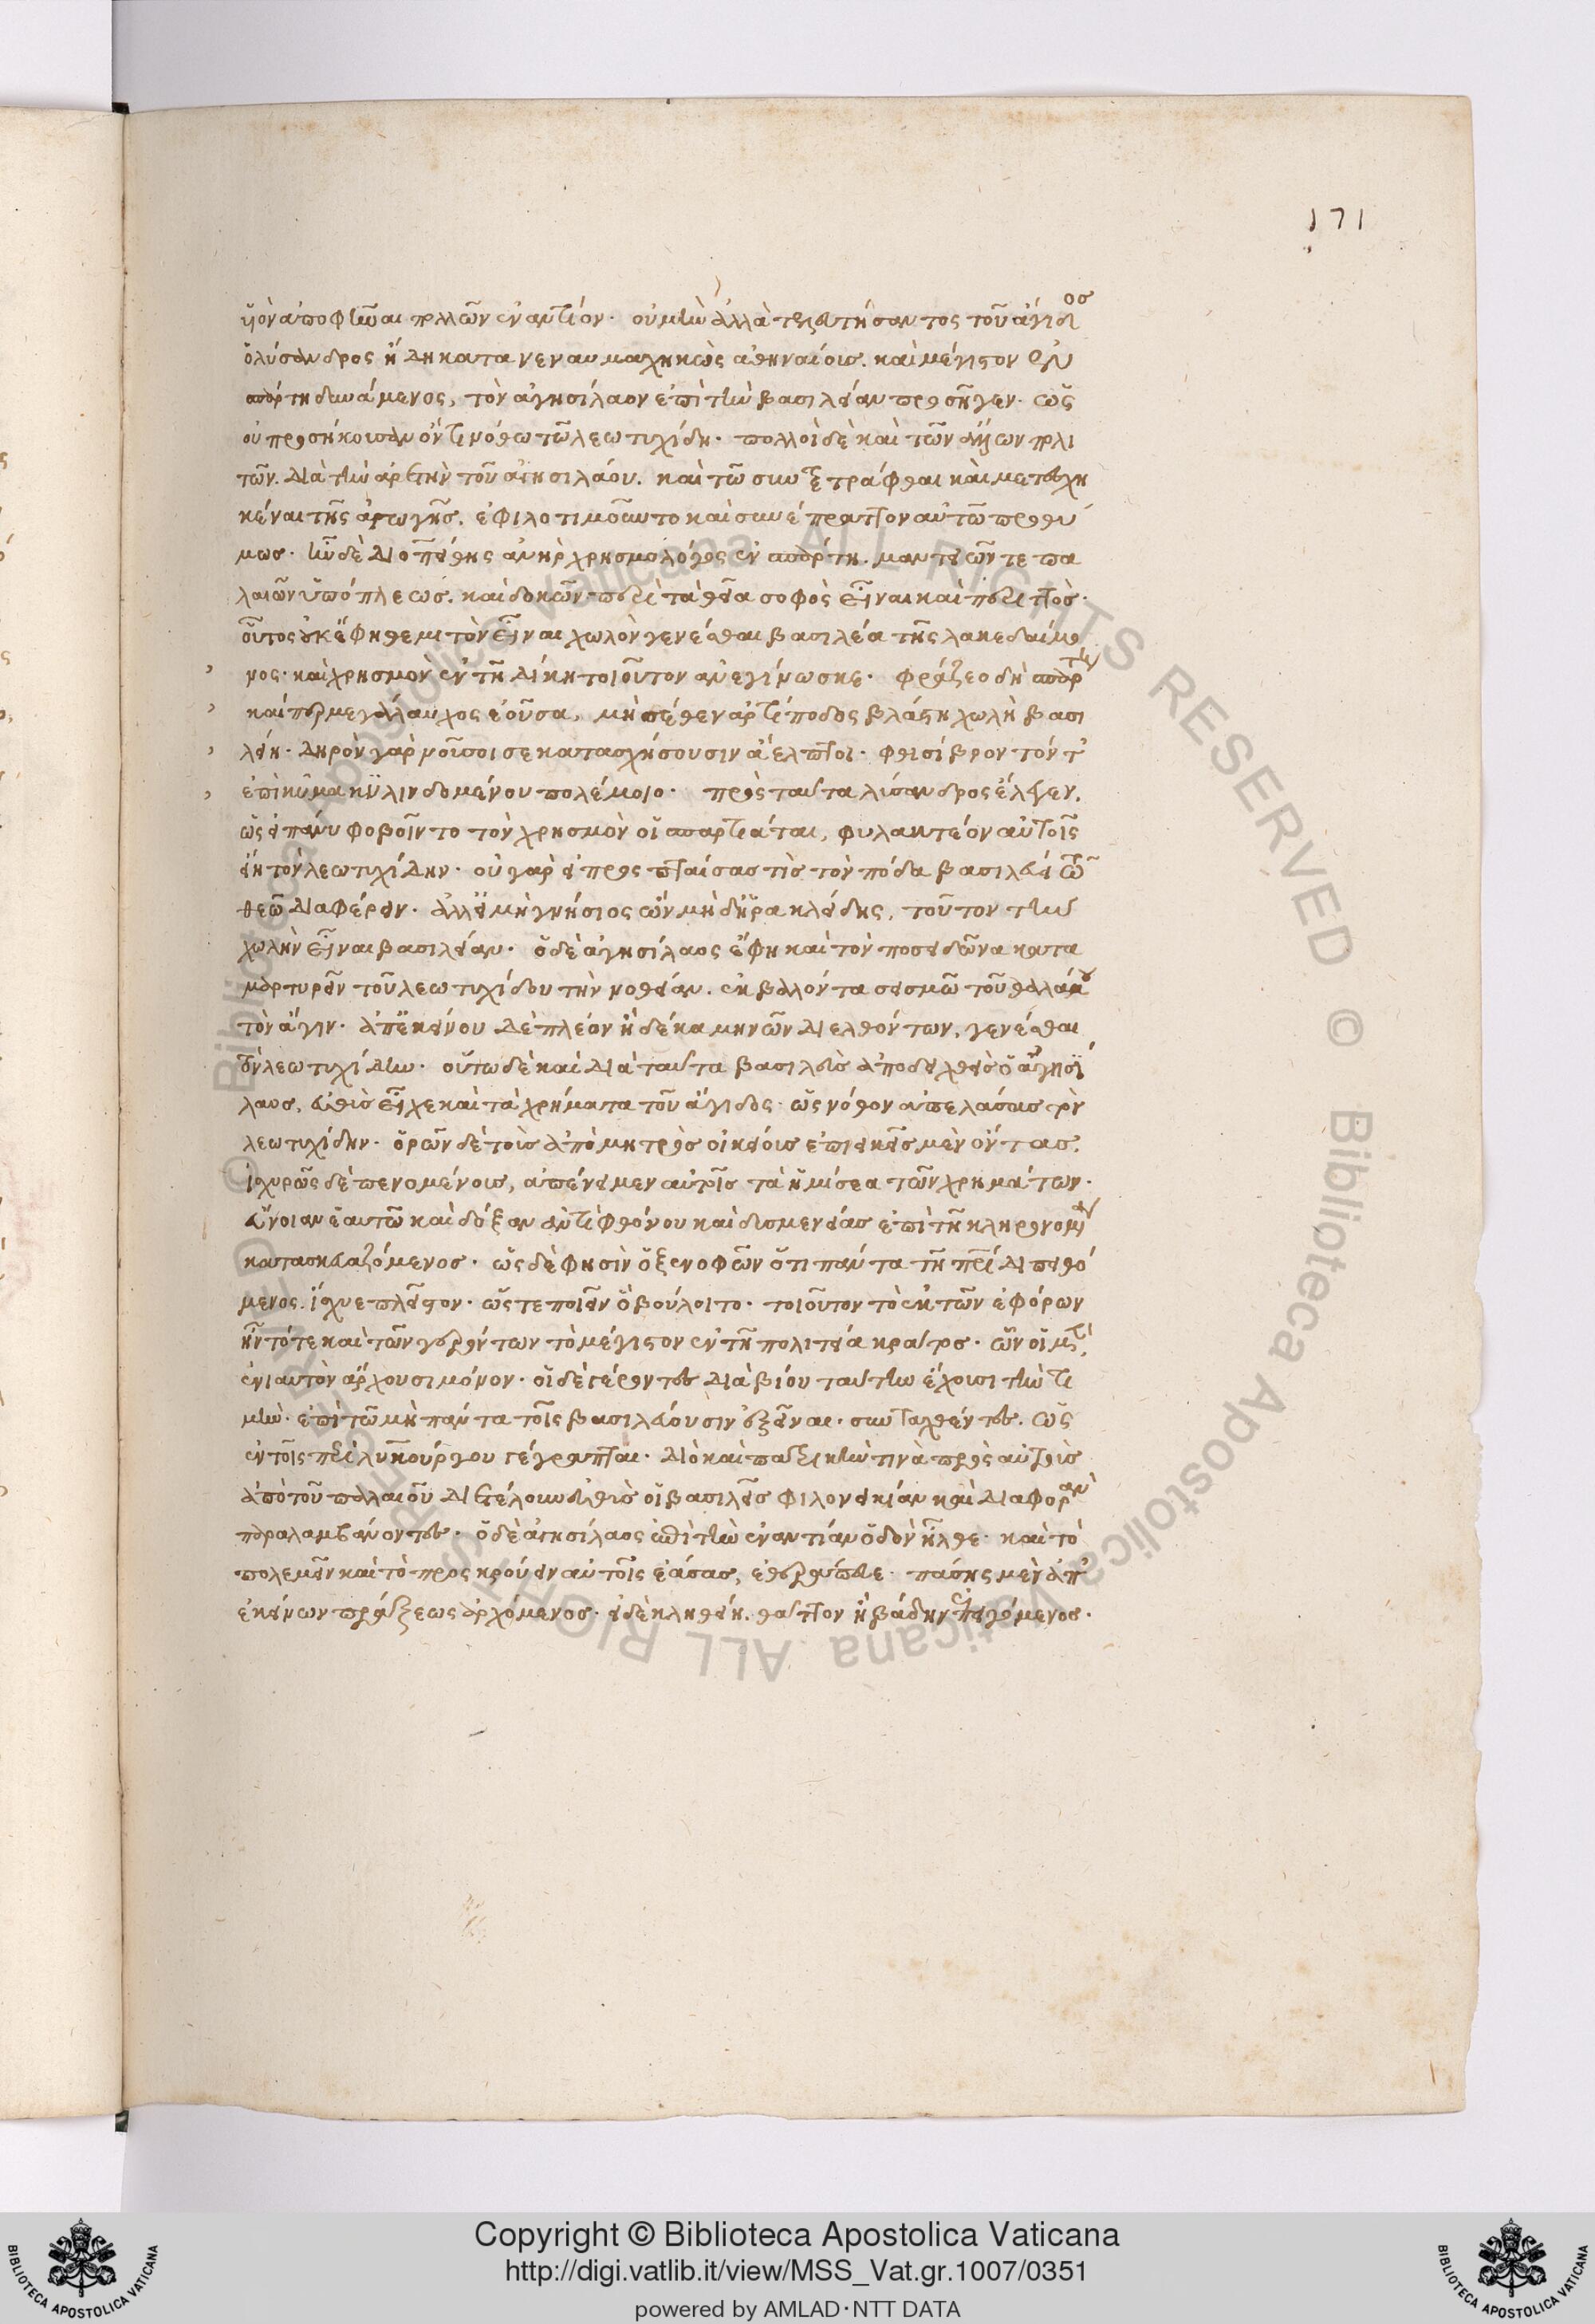 171
υἱὸν ἀποφῆναι πολλῶν ἐναντίον. οὐ μὴν ἀλλὰ τελευτήσαντος τοῦ ἄγιδος
ὁ λύσανδρος ἤδη κατανεναυμαχηκὼς ἀθηναίοις. καὶ μέγιστον ἐν
σπάρτη δυνάμενος, τὸν ἀγησίλαον ἐπὶ τὴν βασιλείαν προσῆγεν. ὡς
οὐ προσήκουσαν ὄντι νόθω τῶ λεωτυχίδη. πολλοὶ δὲ καὶ τῶν ἄλλων πολι
τῶν. διὰ τὴν ἀρετὴν τοῦ ἀγησιλάου. καὶ τῶ συντετράφθαι καὶ μετεσχη
κέναι τῆς ἀγωγῆς. ἐφιλοτιμοῦντο καὶ συνέπραττον αὐτῶ προθύ
μως. ἦν δὲ διοπείθης ἀνὴρ χρησμολόγος ἐν σπάρτη. μαντειῶν τε πα
λαιῶν ὑπόπλεως. καὶ δοκῶν περὶ τὰ θεῖα σοφὸς εἶναι καὶ περιττὸς.
οὗτος οὐκ ἔφη θεμιτὸν εἶναι χωλὸν γενέσθαι βασιλέα τῆς λακεδαίμο
νος. καὶ χρησμὸν ἐν τῆ δίκη τοιοῦτον ἀνεγίνωσκε. φράζεο δὴ σπάρτη
καίπερ μεγάλαυχος ἐοῦσα, μὴ σέθεν ἀρτίποδος βλάστη χωλὴ βασι
λείη. δηρὸν γὰρ νοῦσοί σε κατασχήσουσιν ἄελπτοι. φθισίβροτόν τ'
ἐπὶ κῦμα κυλινδομένου πολέμοιο. πρὸς ταῦτα λύσανδρος ἔλεγεν,
ὡς εἰ πάνυ φοβοῖντο τὸν χρησμὸν οἱ σπαρτιᾶται, φυλακτέον αὐτοῖς
εἴη τὸν λεωτυχίδην. οὐ γὰρ εἰ προσπταίσας τὶς τὸν πόδα βασιλεύει τῶ
θεῶ διαφέρειν. ἀλλ' εἰ μὴ γνήσιος ὢν μὴδ' ἡρακλείδης, τοῦτον τὴν
χωλὴν εἶναι βασιλείαν. ὁ δὲ ἀγησίλαος ἔφη καὶ τὸν ποσειδῶνα κατα
μαρτυρεῖν τοῦ λεωτυχίδου τὴν νοθείαν. ἐκβαλόντα σεισμῶ τοῦ θαλάμου
τὸν ἄγιν. ἀπ' ἐκείνου δὲ πλέον ἢ δέκα μηνῶν διελθόντων, γενέσθαι
τὸν λεωτυχίδην. οὕτω δὲ καὶ διὰ ταῦτα βασιλεὺς ἀποδειχθεὶς ὁ ἀγησί
λαος, εὐθὺς εἶχε καὶ τὰ χρήματα τοῦ ἄγιδος. ὡς νόθον ἀπελάσας τὸν
λεωτυχίδην. ὁρῶν δὲ τοὺς ἀπὸ μητρὸς οἰκείους ἐπιεικεῖς μὲν ὄντας.
ἰσχυρῶς δὲ πενομένους, ἀπένειμεν αὐτοῖς τὰ ἡμίσεα τῶν χρημάτων.
εὔνοιαν ἑαυτῶ καὶ δόξαν ἀντὶ φθόνου καὶ δυσμενείας ἐπὶ τῆ κληρονομία
κατασκευαζόμενος. ὡς δέ φησὶν ὁ ξενοφῶν ὅτι πάντα τῆ πατρίδι πειθό
μενος. ἴσχυε πλεῖστον. ὥστε ποιεῖν ὃ βούλοιτο. τοιοῦτον τὸ ἐκ τῶν ἐφόρων
ἦν τότε καὶ τῶν γερόντων τὸ μέγιστον ἐν τῆ πολιτεία κράτος. ὧν οἱ μὲν
ἐνιαυτὸν ἄρχουσι μόνον. οἱ δὲ γέροντες διὰ βίου ταύτην ἔχουσι τὴν τι
μὴν. ἐπὶ τῶ μὴ πάντα τοῖς βασιλεῦσιν ἐξεῖναι. συνταχθέντες. ὡς
ἐν τοῖς περὶ λυκούργου γέγραπται. διὸ καὶ πατρικήν τινὰ πρὸς αὐτοὺς
ἀπὸ τοῦ παλαιοῦ διετέλουν εὐθὺς οἱ βασιλεῖς φιλονεικίαν καὶ διαφορὰν
παραλαμβάνοντες. ὁ δὲ ἀγησίλαος ἐπὶ τὴν ἐναντίαν ὁδὸν ἦλθε. καὶ τὸ
πολεμεῖν καὶ τὸ προσκρούειν αὐτοῖς ἐάσας, ἐθεράπευε. πάσης μὲν ἀπ'
ἐκείνων πράξεως ἀρχόμενος. εἰ δὲ κληθείη. θᾶττον ἢ βάδην ἐπειγόμενος.
© Biblioteca Apostolica Vaticana ALL RIGHTS RESERVED © Biblioteca Apostolica Vaticana ALL RIGHTS RESERVED
Copyright © Biblioteca Apostolica Vaticana
http://digi.vatlib.it/view/MSS_Vat.gr.1007/0351
powered by AMLAD·NTT DATA
BIBLIOTECA APOSTOLICA VATICANA
BIBLIOTECA APOSTOLICA VATICANA